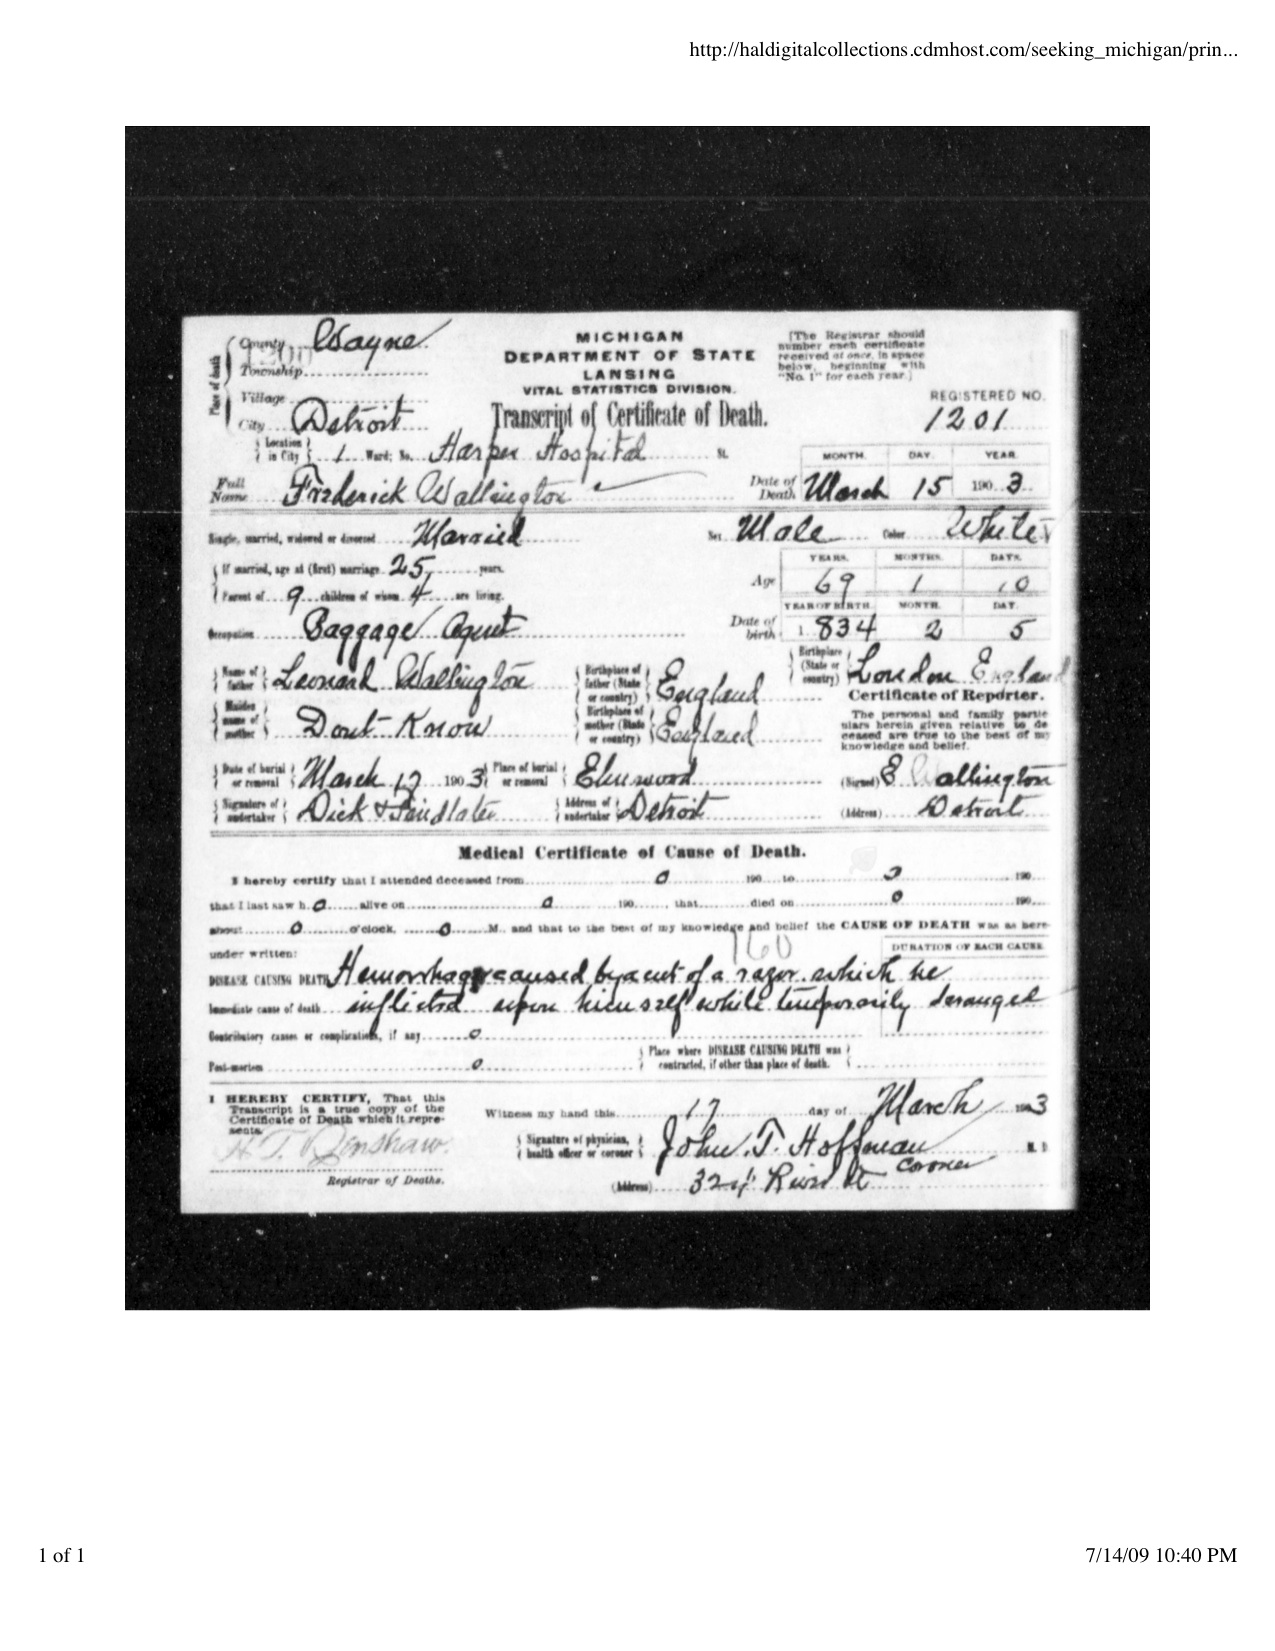 http://haldigitalcollections.cdmhost.com/seeking_michigan/prin...
Place of death
County Wayne
1200
Township
Village
City Detroit
Location in City 1 Ward; No. Harper Hospital St.
Full Name Frederick Wallington
MICHIGAN
DEPARTMENT OF STATE
LANSING
VITAL STATISTICS DIVISION.
Transcript of Certificate of Death.
[The Registrar should
number each certificate
received at once, in space
below, beginning with
"No. 1" for each year.]
REGISTERED NO.
1201
MONTH. DAY. YEAR.
Date of Death March 15 1903
Single, married, widowed or divorced Married
Sex Male Color White
If married, age at (first) marriage 25 years.
Parent of 9 children of whom 4 are living.
Occupation Baggage Agent
YEARS. MONTHS. DAYS.
Age 69 1 10
YEAR OF BIRTH. MONTH. DAY.
Date of birth 1834 2 5
Name of father Leonard Wallington
Birthplace of father (State or country) England
Birthplace (State or country) London England
Maiden name of mother Dont Know
Birthplace of mother (State or country) England
Certificate of Reporter.
The personal and family partic
ulars herein given relative to de
ceased are true to the best of my
knowledge and belief.
Date of burial or removal March 17 1903 Place of burial or removal Elmwood
(Signed) E Wallington
Signature of undertaker Dick & Findlater Address of undertaker Detroit
(Address) Detroit
Medical Certificate of Cause of Death.
I hereby certify that I attended deceased from 0 190 to 0 190
that I last saw h 0 alive on 0 190, that died on 0 190
about 0 o'clock, 0 M., and that to the best of my knowledge and belief the CAUSE OF DEATH was as here-
under written:
160
DURATION OF EACH CAUSE
DISEASE CAUSING DEATH Hemorrhage caused by a cut of a razor which he
Immediate cause of death inflicted upon himself while temporarily deranged
Contributory causes or complications, if any 0
Post-mortem 0
Place where DISEASE CAUSING DEATH was contracted, if other than place of death.
I HEREBY CERTIFY, That this
Transcript is a true copy of the
Certificate of Death which it repre-
sents.
H. T. Renshaw.
Registrar of Deaths.
Witness my hand this 17 day of March 1903
Signature of physician, health officer or coroner John T. Hoffman M. D
Coroner
(Address) 324
1 of 1
7/14/09 10:40 PM